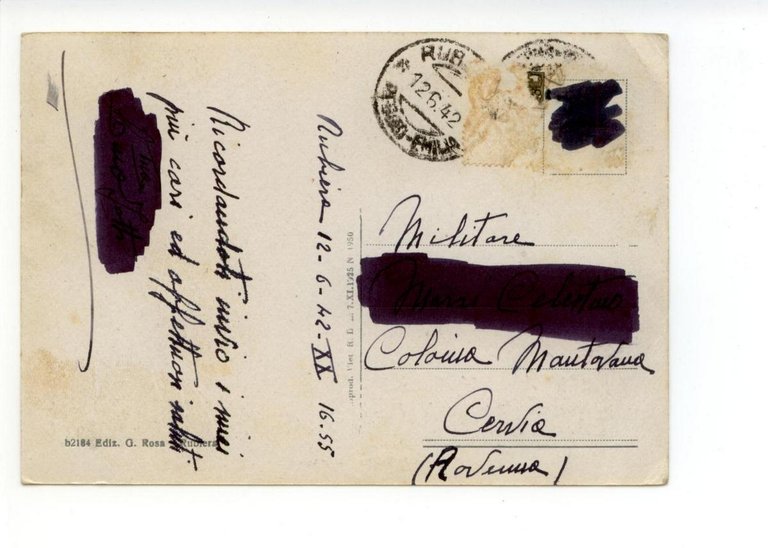 RUB
12.6.42
REGGIO-EMILIA
Rubiera 12-6-42-XX 16.55
Ricordandoti invio i miei
più cari ed affettuosi saluti
Militare
Celestino
Colonia Mantovana
Cervia
(Ravenna)
b2184 Ediz. G. Rosa - Rubiera